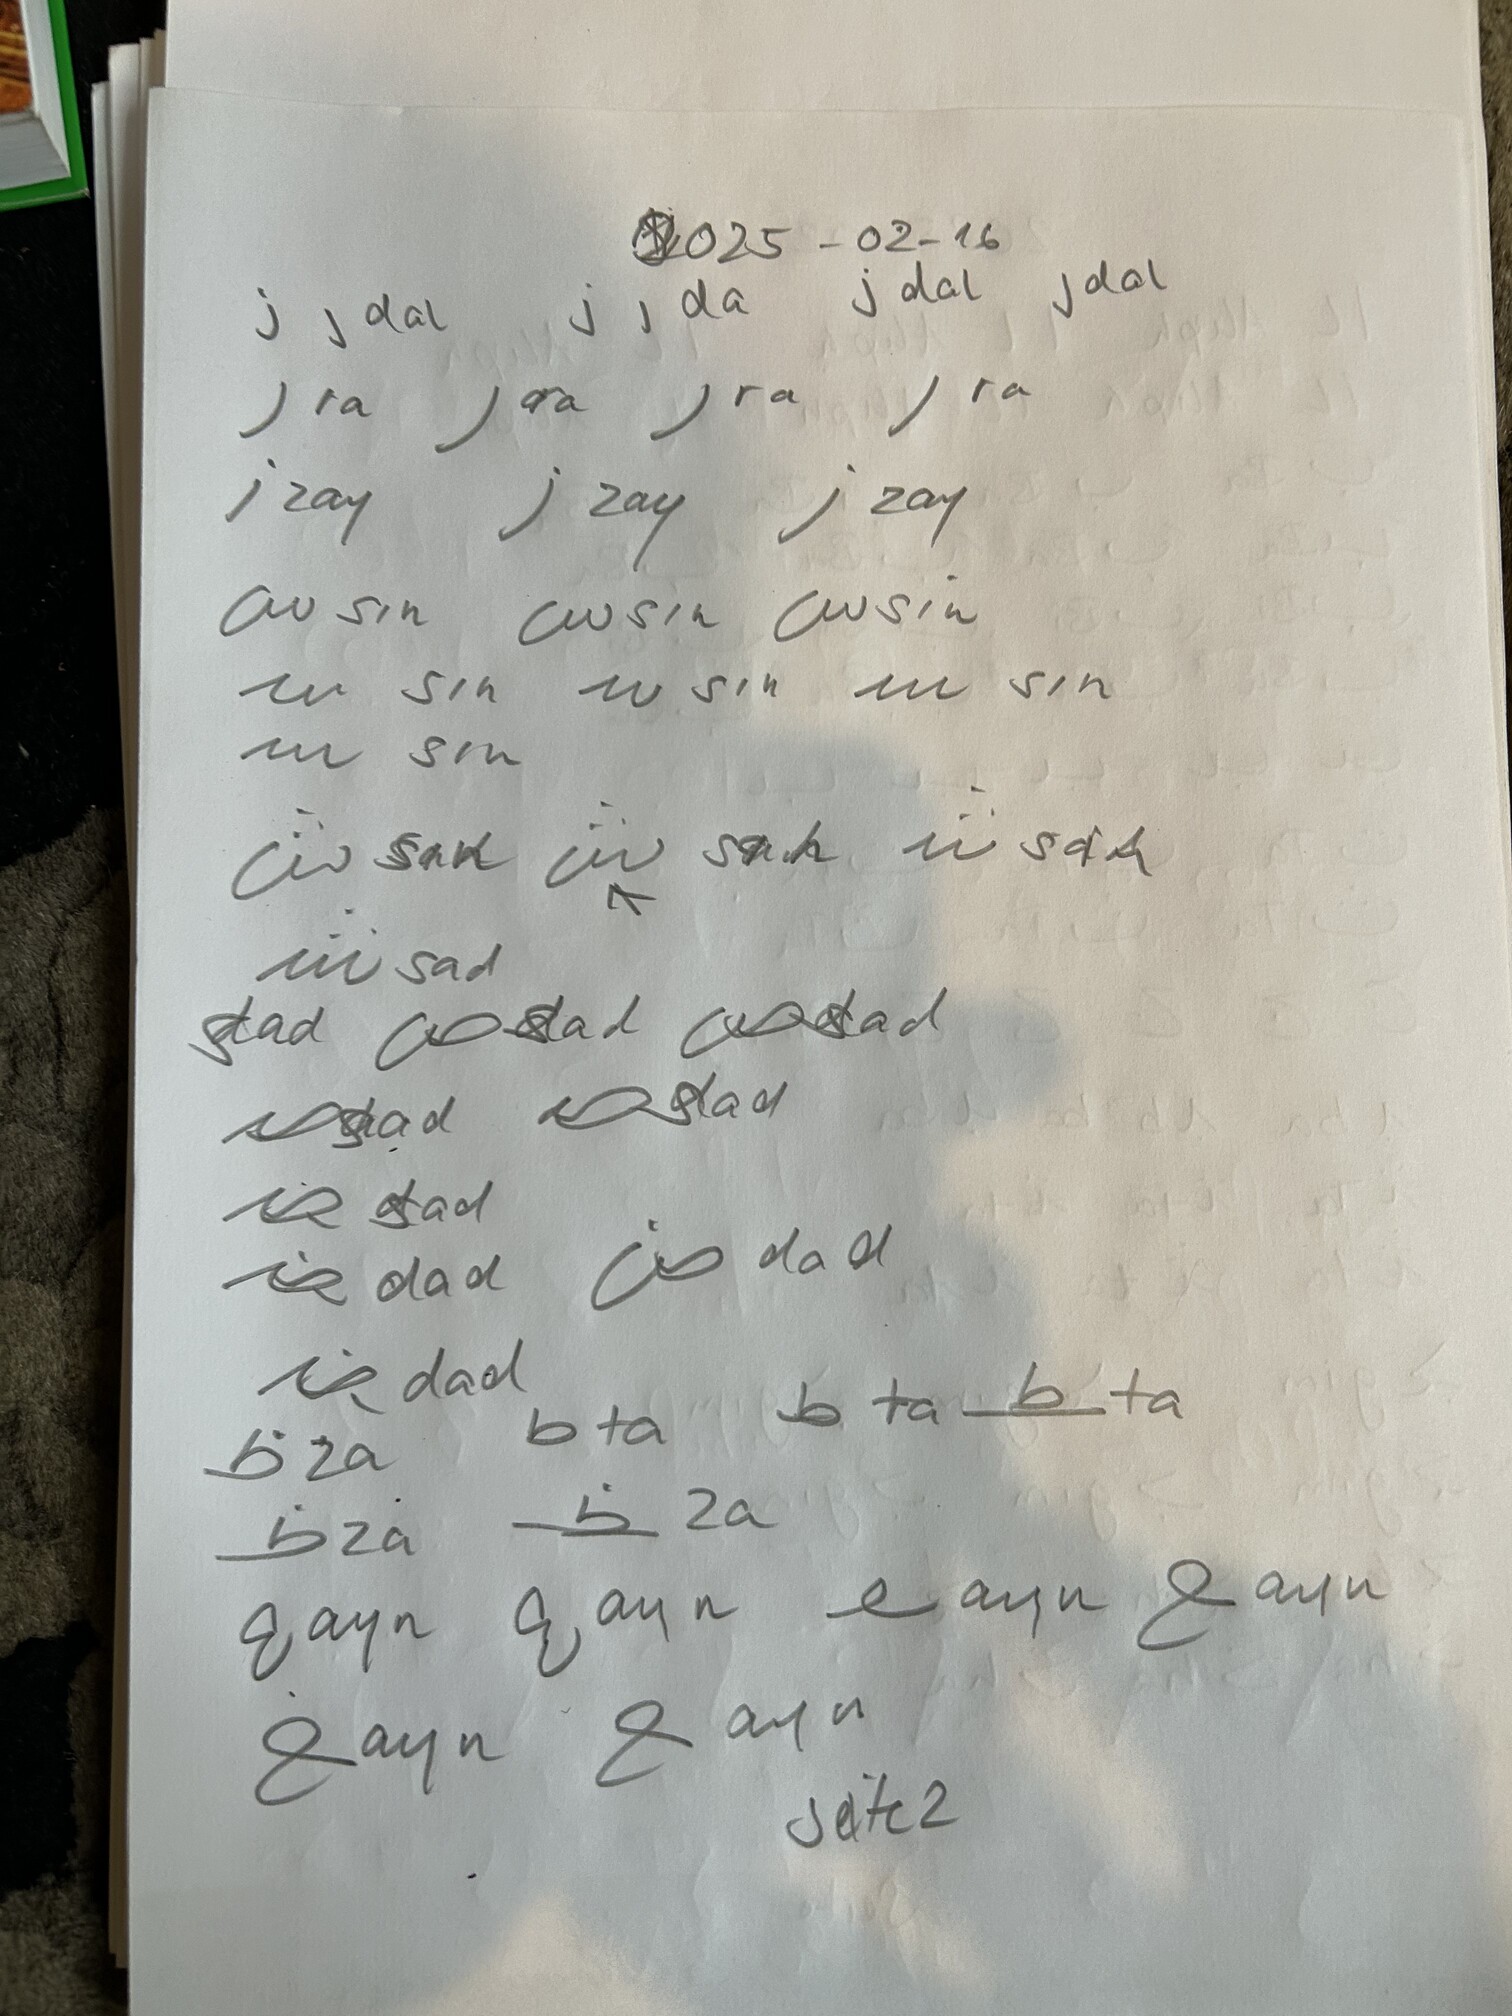 2025-02-16
ذ د dal ذ د da ذ dal د dal
ر ra ر ra ر ra ر ra
ز zay ز zay ز zay
س sin س sin س sin
سـ sin سـ sin سـ sin
سـ sin
ش ش شـ
شـ sad
sad ص sad ص sad
صـ sad صـ sad
ضـ sad
ضـ dad ض dad
ضـ dad
ظ za ط ta ط ta ـطـ ta
ظ za ـظـ za
ع ayn ع ayn عـ ayn ع ayn
غ ayn ع ayn
seite 2